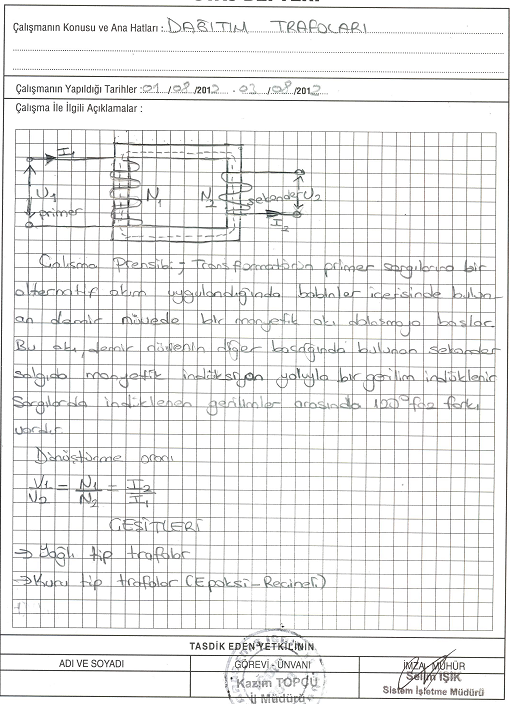 Çalışmanın Konusu ve Ana Hatları : DAĞITIM TRAFOLARI
Çalışmanın Yapıldığı Tarihler : 01/08/2012 - 03/08/2012
Çalışma İle İlgili Açıklamalar :
I1
U1
primer
N1
N2
sekonder
U2
I2
Çalışma Prensibi; Transformatörün primer sargılarına bir
alternatif akım uygulandığında bobinler içerisinde bulun-
an demir nüvede bir manyetik akı dolaşmaya başlar.
Bu akı, demir nüvenin diğer bacağında bulunan sekonder
salgıda manyetik indüksiyon yoluyla bir gerilim indüklenir
Sargılarda indüklenen gerilimler arasında 120° faz farkı
vardır.
Dönüştürme oranı
V1/U2 = N1/N2 = I2/I1
ÇEŞİTLERİ
→ Yağlı tip trafolar
→ Kuru tip trafolar (Epoksi-Reçineli)
TASDİK EDEN YETKİLİNİN
ADI VE SOYADI
GÖREVİ - ÜNVANI
İMZA, MÜHÜR
Kazım TOPÇU
İl Müdürü
Selim IŞIK
Sistem İşletme Müdürü